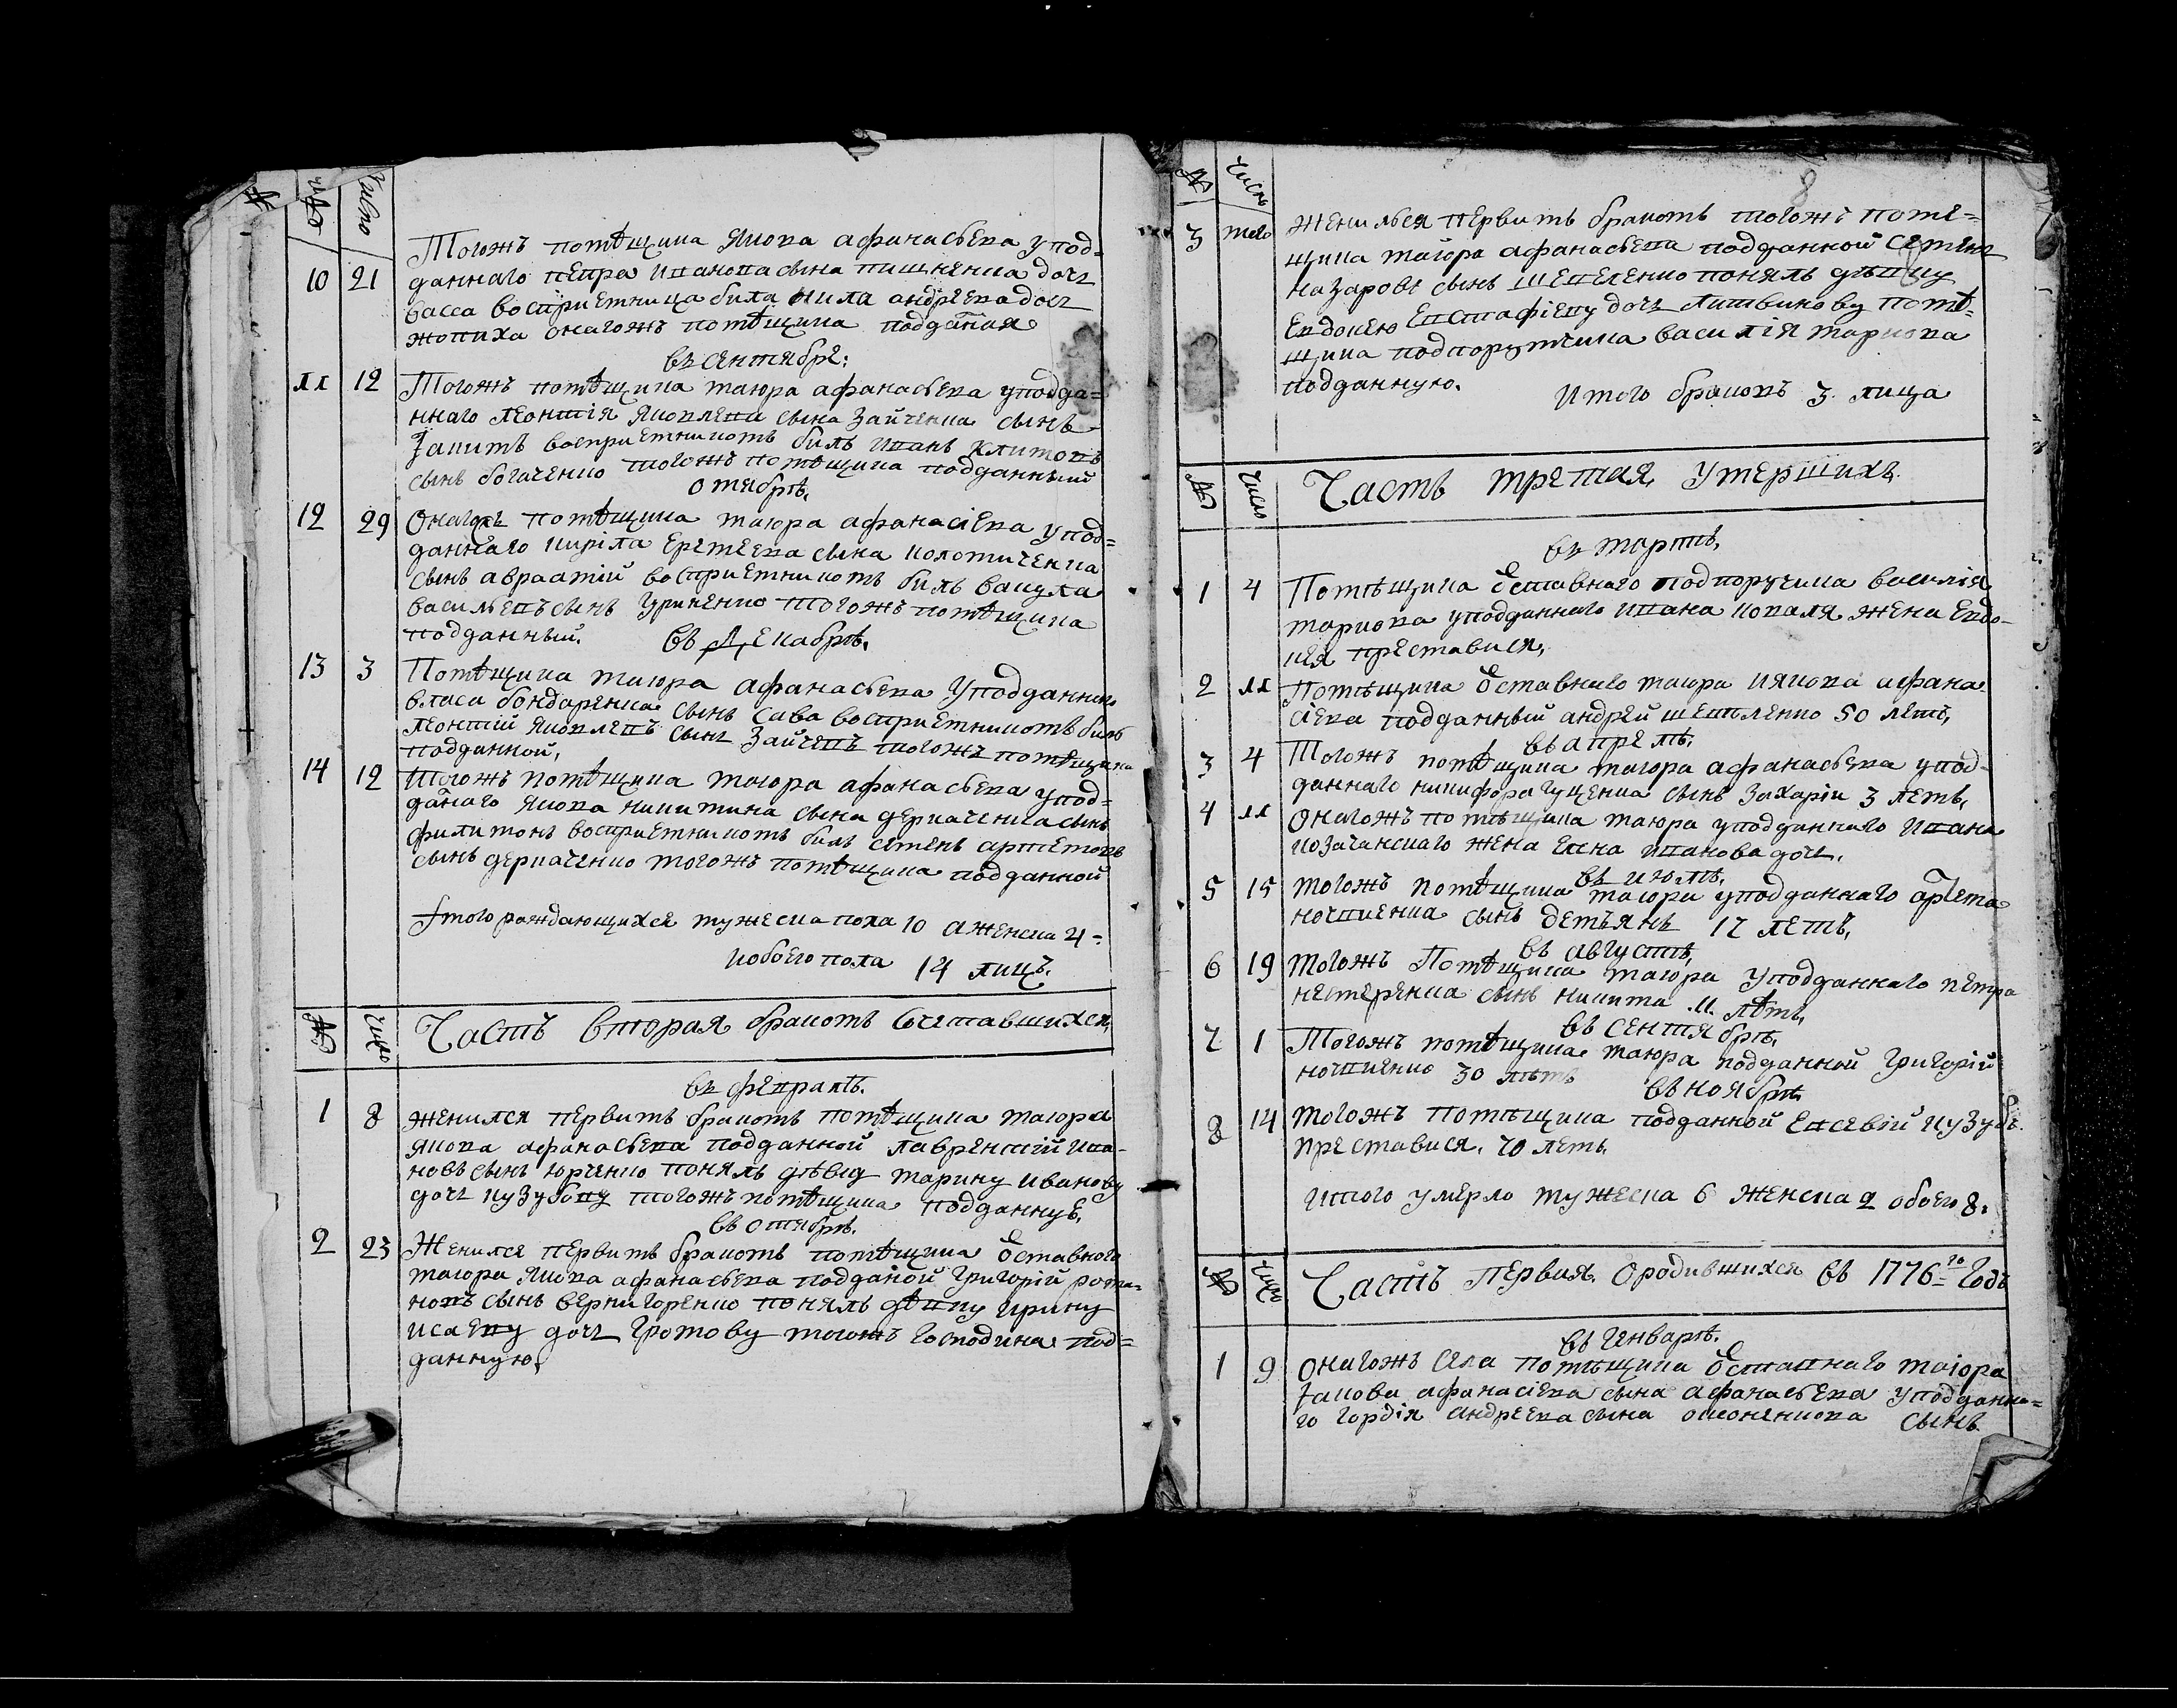 № число
Тогожъ помѣщика якова афанасьева упод=
10 21 даннаго петра иванова сына пищненка доч
васса восприемница била акила андреева доч
жопиха онагожъ помѣщика подданая
въ сентябрѣ:
11 12 Тогожъ помѣщика маюра афанасьева уподда=
ннаго леонтія яковлева сына зайченка сынъ
Іакимъ восприемникомъ билъ иванъ климовъ
сынъ богаченко тогожъ помѣщика подданный
октябрѣ,
12 29 Онагожъ помѣщика маюра афанасіева упод=
даннаго киріла еремеева сына коломиченка
сынъ авраамій восприемникомъ билъ вакула
васильевъ сынъ гриненко тогожъ помѣщика
подданный. въ декабрѣ,
13 3 Помѣщика маюра афанасьева уподданнаго
власа бондаренка сынъ сава восприемникомъ билъ
леонтій яковлевъ сынъ зайчевъ тогожъ помѣщика
подданной,
14 12 Тогожъ помѣщика маюра афанасьева упод=
данаго якова никитина сына деркаченка сынъ
филимонъ восприемникомъ билъ семенъ артемовъ
сынъ деркаченко тогожъ помѣщика подданной
Ітого раждающихся мужеска пола 10 аженска 4=
иобоего пола 14 лицъ.
№ число Часть вторая бракомъ сочетавшихся,
въ февралѣ.
1 8 женился первимъ бракомъ помѣщика маюра
якова афанасьева подданной лаврентій ива=
новъ сынъ юрченко понялъ дѣвку марину иванову
доч кузубову тогожъ помѣщика подданнуе.
въ октябрѣ.
2 23 Женился первимъ бракомъ помѣщика оставного
маюра якова афанасьева подданой григорій рома=
новъ сынъ вернигоренко понялъ дѣвку ирину
исаеву доч громову тогожъ господина под=
данную,
№ число
8
3 того женилься первимъ бракомъ тогожъ поме=
щика маюра афанасьева подданной семенъ
назаровъ сынъ шепеленко понялъ дѣвицу
евдокею евстафіеву доч литвинову помѣ=
щика подпорутчика василія маркова
подданную. Итого браковъ 3 лица
№ число Часть третая, умершихъ
въ мартѣ,
1 4 Помѣщика оставнаго подпоручика василія
маркова уподданнаго ивана коваля жена евдо-
кея преставися,
2 11 Помѣщика оставнаго маюра иякова афана
сіева подданный андрей шепленко 50 летъ,
въ апрелѣ.
3 4 Тогожъ помѣщика маюра афанасьева упод-
даннаго никифора гущенка сынъ захарій 3 летъ,
4 11 онагожъ помѣщика маюра уподданнаго ивана
козачанскаго жена елена иванова доч,
въ июлѣ.
5 15 тогожъ помѣщика маюра уподданнаго артема
сынъ демъянъ 17 летъ,
въ августѣ,
6 19 тогожъ Помѣщика маюра уподданнаго петра
нестеренка сынъ никита лѣтъ,
въ сентябрѣ,
7 1 Тогожъ помѣщика маюра подданной григорій
30 лѣтъ въ ноябрѣ
8 14 тогожъ помѣщика подданной евсевій кузубъ.
преставися, 70 летъ.
итого умерло мужеска 6 женска 2 обоего 8.
№ число Часть первая. ородившихся въ 1776=го годъ
въ генварѣ.
1 9 онагожъ села помѣщика оставнаго маіора
Іакова афанасіева сына афанасьева уподданна=
го гордія андреева сына сынъ